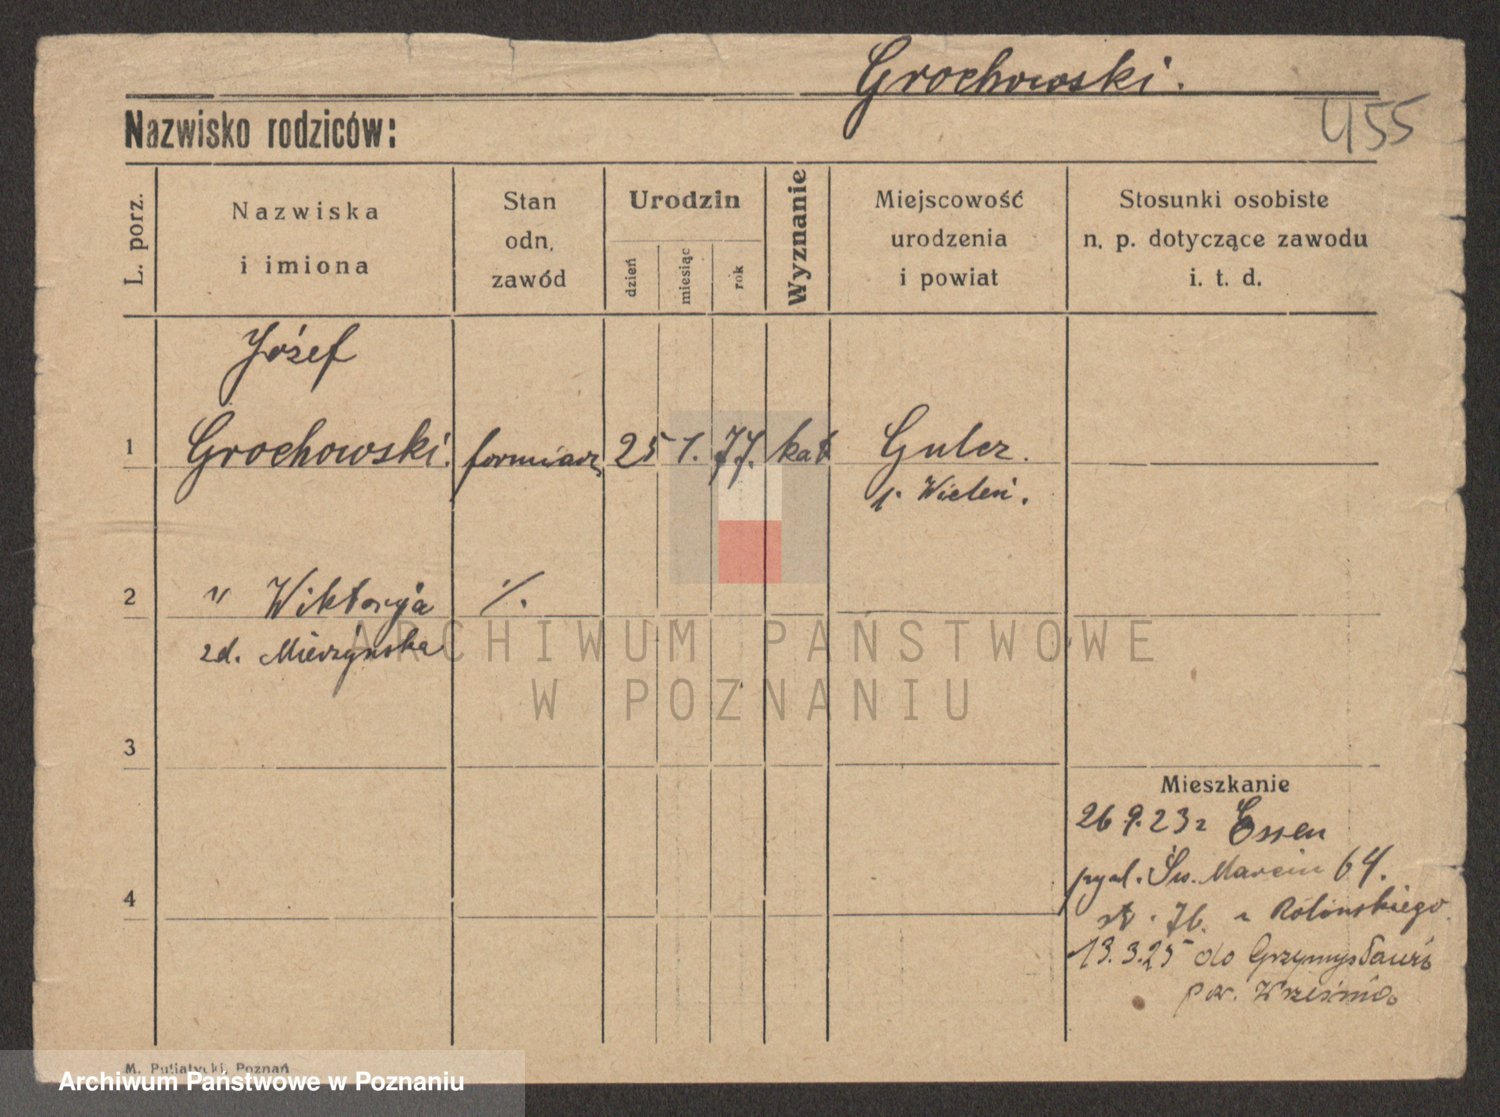 Grochowski.
455
Nazwisko rodziców:
L. porz.
Nazwiska
i imiona
Stan
odn.
zawód
Urodzin
dzień
miesiąc
rok
Wyznanie
Miejscowość
urodzenia
i powiat
Stosunki osobiste
n. p. dotyczące zawodu
i. t. d.
Józef
1 Grochowski. formiarz 25 1. 77. kat Gulcz.
p. Wieleń.
2 " Wiktorja ./.
zd. Mierzyńska
ARCHIWUM PAŃSTWOWE
W POZNANIU
3
Mieszkanie
26.9.23 z Essen
Św. Marcin 64.
4
u Rólińskiego
13.3.25 do Grzymysławic
pow. Września
M. Putiatycki, Poznań
Archiwum Państwowe w Poznaniu